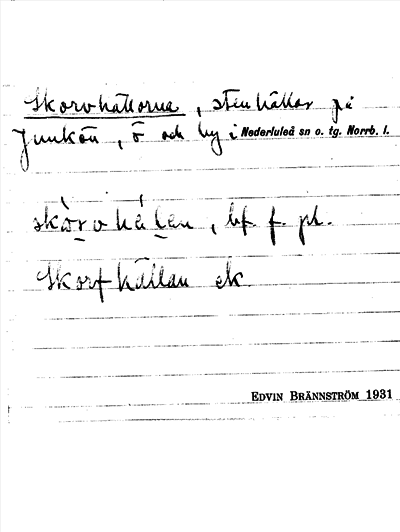 Skorvhällorna, stenhällar på
Junkön, ö och by i Nederluleå sn o. tg. Norrb. l.
skòrvhé̀len, bf. f. pl.
Skorfhällan ek
EDVIN BRÄNNSTRÖM 1931